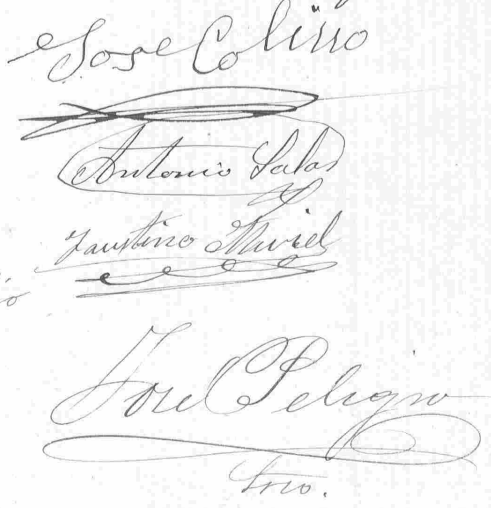 Jose Colino
Antonio Salas
Faustino Muriel
Jose Peligro
Srio.